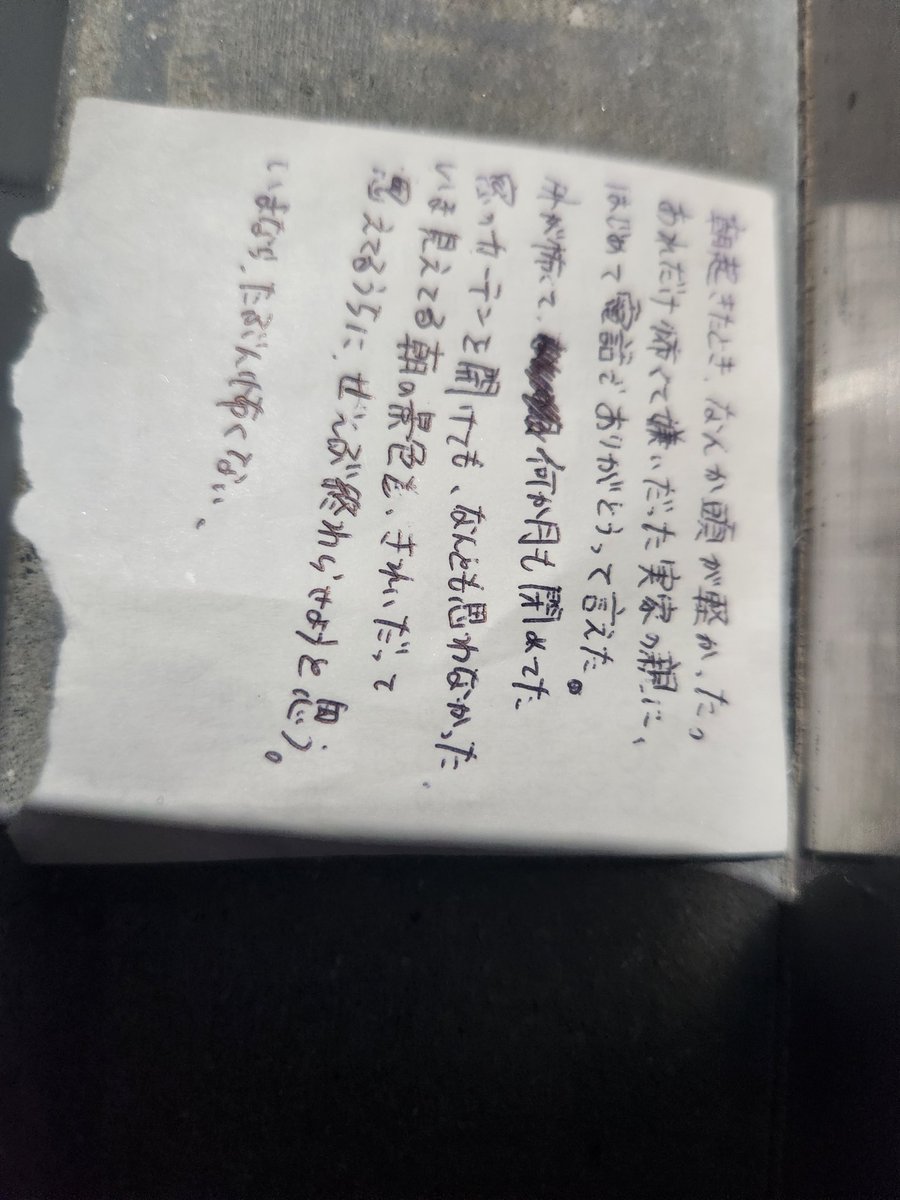 朝起きたとき、なんか頭が軽かった。
あれだけ怖くて嫌いだった実家の親に、
はじめて電話でありがとうって言えた。
外が怖くて、何か月も閉めてた
窓のカーテンを開けても、なんとも思わなかった.
いま見えてる朝の景色を、きれいだって
思えてるうちに、ぜんぶ終わらせようと思う。
いまなら、たぶん怖くない、